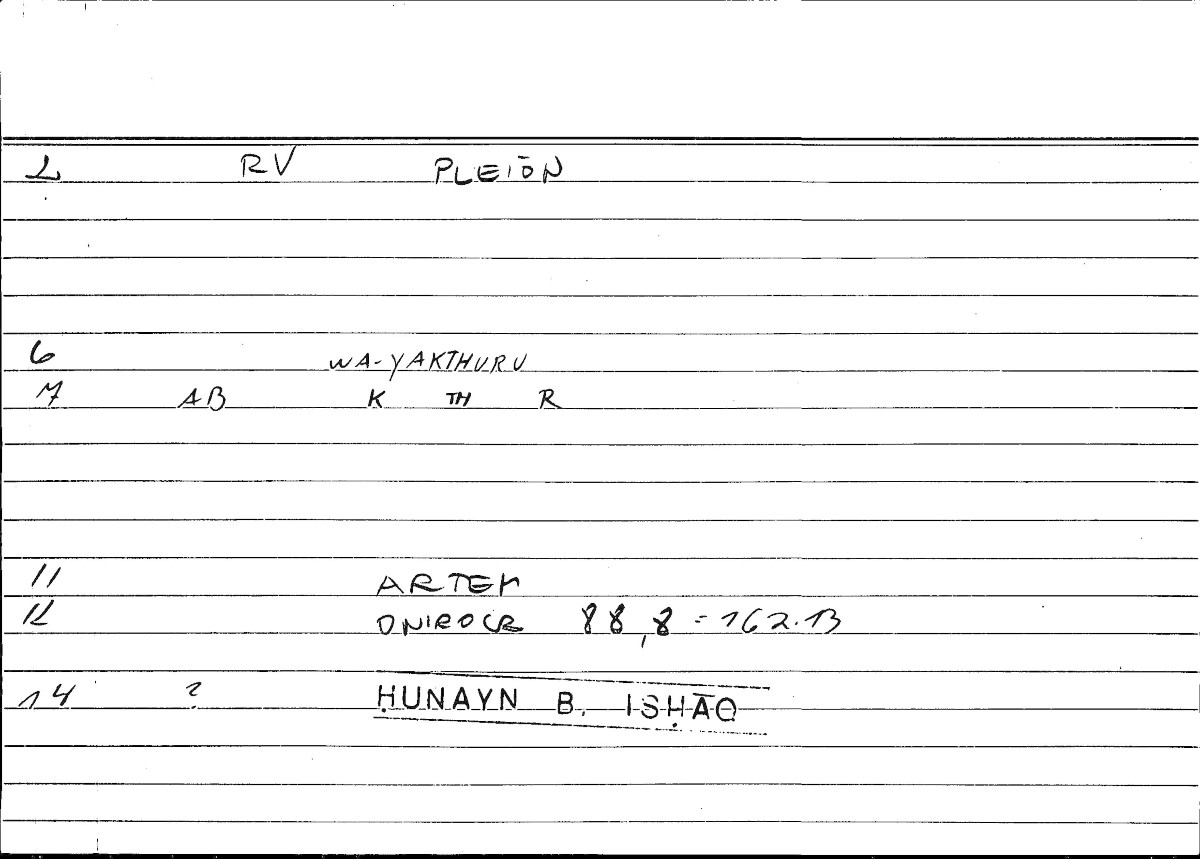 2 RV PLEIŌN
6 WA-YAKTHURU
7 AB K TH R
11 ARTEM
12 ONIROCR 88,8=162.13
14 ? ḤUNAYN B. ISḤĀQ